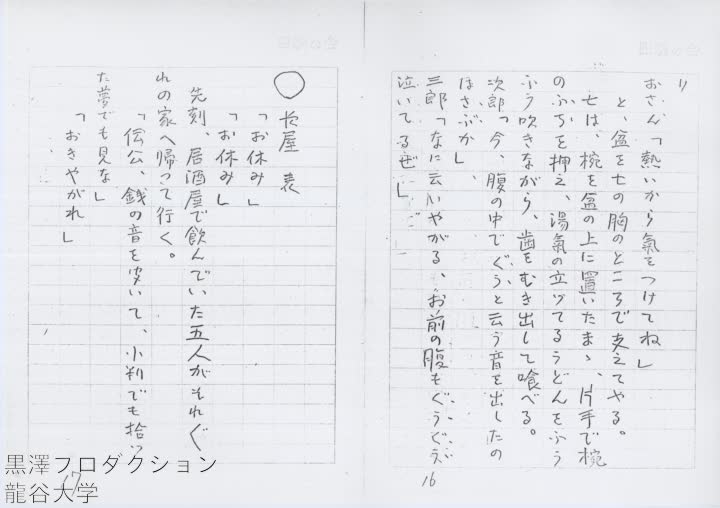 り
おさん「熱いから氣をつけてね」
と、盆を七の胸のところで支えてやる。
七は、椀を盆の上に置いたまゝ、片手で椀
のふちを押え、湯氣の立ってるうどんをふう
ふう吹きながら、歯をむき出して喰べる。
次郎「今、腹の中でぐうと云う音を出したの
はさぶか」
三郎「なに云いやがる、お前の腹もぐうぐう
泣いてるぜ」
16
○ 長屋 表
「お休み」
「お休み」
先刻、居酒屋で飲んでいた五人がそれぐ
れの家へ帰って行く。
「伝公、銭の音を安いて、小判でも拾っ
た夢でも見な」
「おきやがれ」
17
黒澤プロダクション
龍谷大学